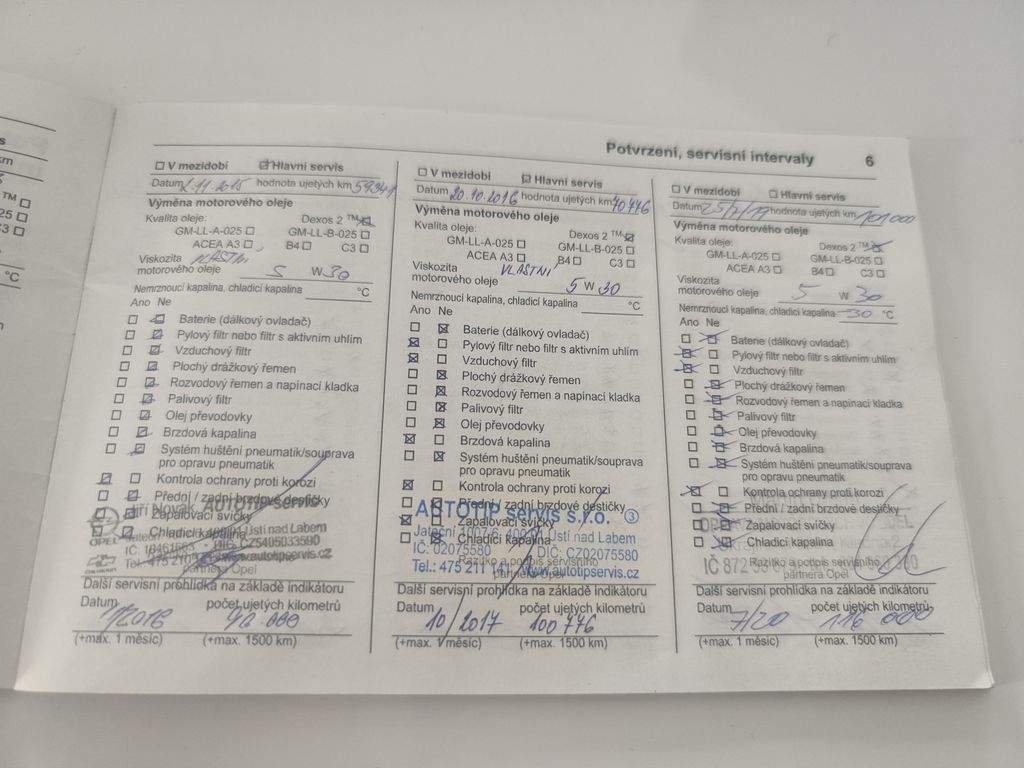 Potvrzení, servisní intervaly 6
V mezidobí Hlavní servis
Datum 2.11.2015 hodnota ujetých km
Výměna motorového oleje
Kvalita oleje: Dexos 2 ™
GM-LL-A-025 GM-LL-B-025
ACEA A3 B4 C3
Viskozita VLASTNÍ
motorového oleje 5 W 30
Nemrznoucí kapalina, chladicí kapalina °C
Ano Ne
Baterie (dálkový ovladač)
Pylový filtr nebo filtr s aktivním uhlím
Vzduchový filtr
Plochý drážkový řemen
Rozvodový řemen a napínací kladka
Palivový filtr
Olej převodovky
Brzdová kapalina
Systém huštění pneumatik/souprava
pro opravu pneumatik
Kontrola ochrany proti korozi
Přední / zadní brzdové destičky
Zapalovací svíčky
Chladicí kapalina
Jiří Novák AUTOTIP servis
Ústí nad Labem
OPEL
CZ5405033590
www.autotipservis.cz
partnera Opel
Další servisní prohlídka na základě indikátoru
Datum počet ujetých kilometrů
(+max. 1 měsíc) (+max. 1500 km)
V mezidobí Hlavní servis
Datum 20.10.2016 hodnota ujetých km 70 776
Výměna motorového oleje
Kvalita oleje: Dexos 2 ™
GM-LL-A-025 GM-LL-B-025
ACEA A3 B4 C3
Viskozita VLASTNÍ
motorového oleje 5 W 30
Nemrznoucí kapalina, chladicí kapalina °C
Ano Ne
Baterie (dálkový ovladač)
Pylový filtr nebo filtr s aktivním uhlím
Vzduchový filtr
Plochý drážkový řemen
Rozvodový řemen a napínací kladka
Palivový filtr
Olej převodovky
Brzdová kapalina
Systém huštění pneumatik/souprava
pro opravu pneumatik
Kontrola ochrany proti korozi
Přední / zadní brzdové destičky
AUTOTIP servis s.r.o. 3
Zapalovací svíčky
Ústí nad Labem
Chladicí kapalina
IČ: 02075580 DIČ: CZ02075580
Razítko a podpis servisního
Tel.: 475 211 141 www.autotipservis.cz
partnera Opel
Další servisní prohlídka na základě indikátoru
Datum 10/2017 počet ujetých kilometrů 100 776
(+max. 1 měsíc) (+max. 1500 km)
V mezidobí Hlavní servis
Datum 25/7/19 hodnota ujetých km 101 000
Výměna motorového oleje
Kvalita oleje: Dexos 2 ™
GM-LL-A-025 GM-LL-B-025
ACEA A3 B4 C3
Viskozita
motorového oleje 5 W 30
Nemrznoucí kapalina, chladicí kapalina -30 °C
Ano Ne
Baterie (dálkový ovladač)
Pylový filtr nebo filtr s aktivním uhlím
Vzduchový filtr
Plochý drážkový řemen
Rozvodový řemen a napínací kladka
Palivový filtr
Olej převodovky
Brzdová kapalina
Systém huštění pneumatik/souprava
pro opravu pneumatik
Kontrola ochrany proti korozi
Přední / zadní brzdové destičky
Zapalovací svíčky
Chladicí kapalina
Razítko a podpis servisního
partnera Opel
Další servisní prohlídka na základě indikátoru
Datum 7/20 počet ujetých kilometrů 116 000
(+max. 1 měsíc) (+max. 1500 km)